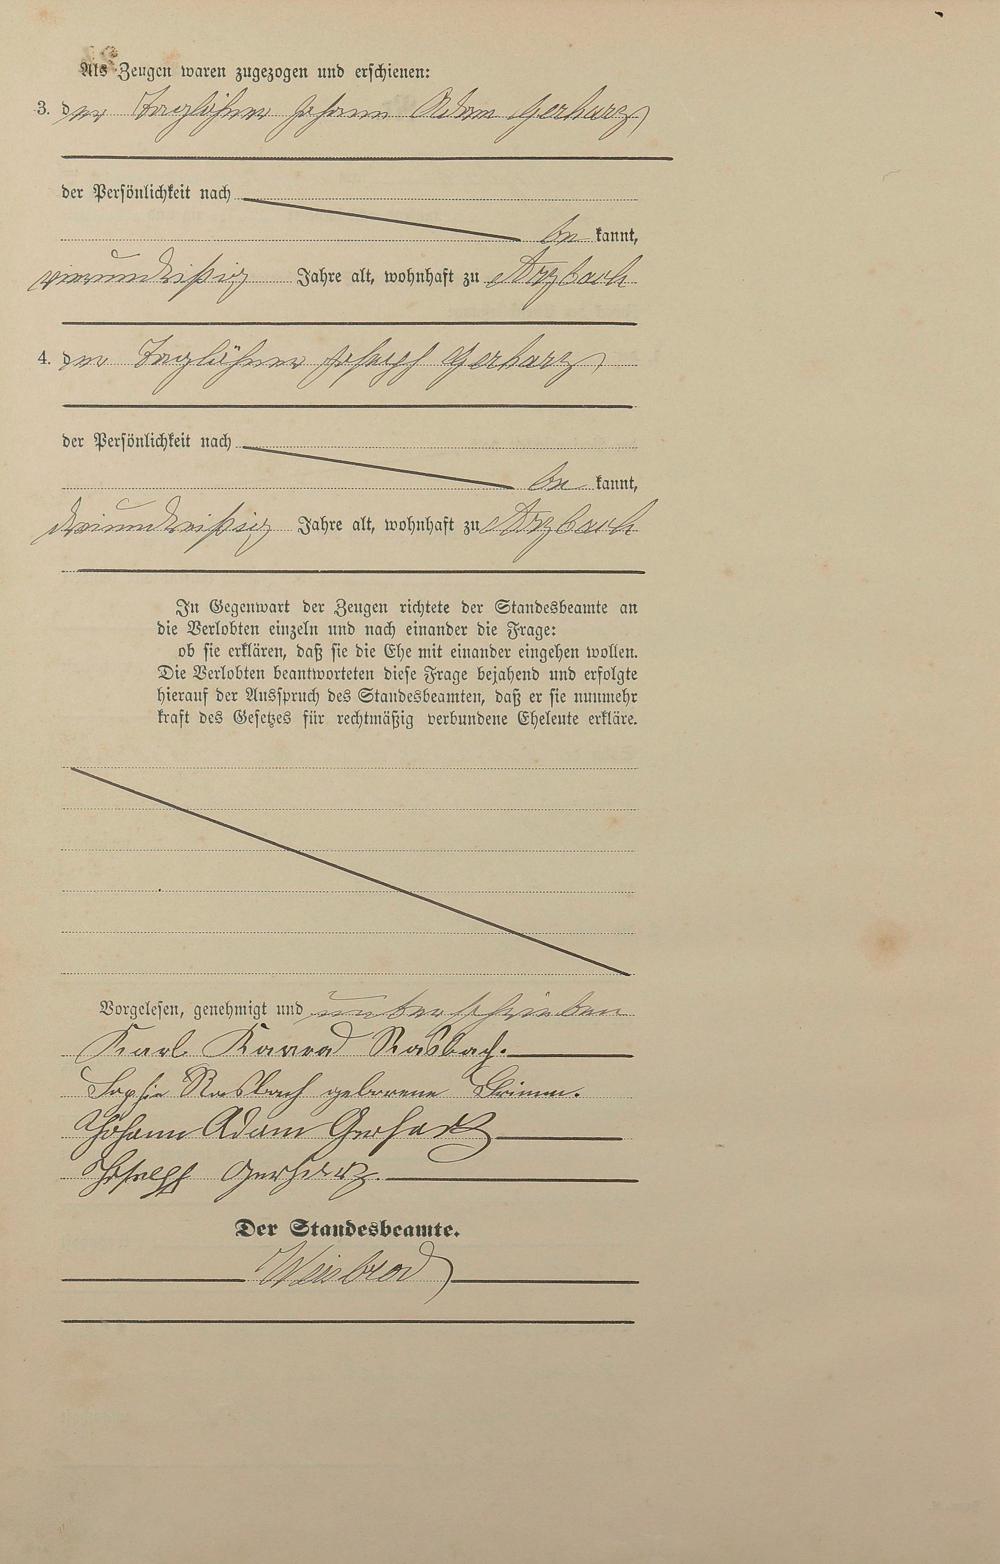 Als Zeugen waren zugezogen und erschienen:
3. der Taglöhner Johann Adam Gerharz
der Persönlichkeit nach
be kannt,
vierunddreißig Jahre alt, wohnhaft zu Arzbach
4. der Taglöhner Joseph Gerharz
der Persönlichkeit nach
be kannt,
dreiunddreißig Jahre alt, wohnhaft zu Arzbach
In Gegenwart der Zeugen richtete der Standesbeamte an
die Verlobten einzeln und nach einander die Frage:
ob sie erklären, daß sie die Ehe mit einander eingehen wollen.
Die Verlobten beantworteten diese Frage bejahend und erfolgte
hierauf der Ausspruch des Standesbeamten, daß er sie nunmehr
kraft des Gesetzes für rechtmäßig verbundene Eheleute erkläre.
Vorgelesen, genehmigt und unterschrieben
Karl Konrad Rasbach.
Sophie Rasbach geborene
Johann Adam Gerharz
Joseph Gerharz.
Der Standesbeamte.
Weisbrod